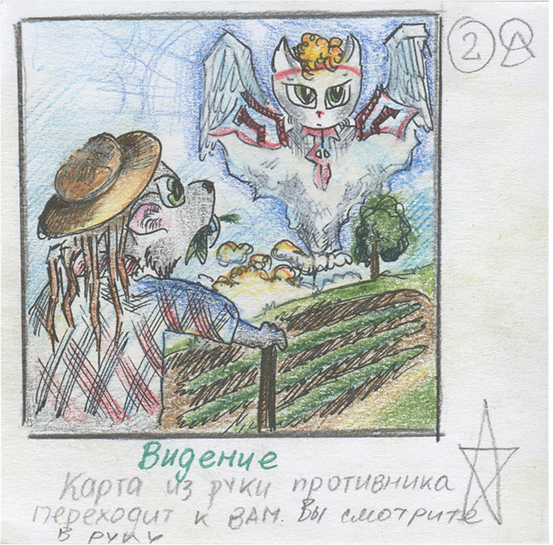 2 А
Видение
Карта из руки противника
переходит к вам. Вы смотрите
в руку